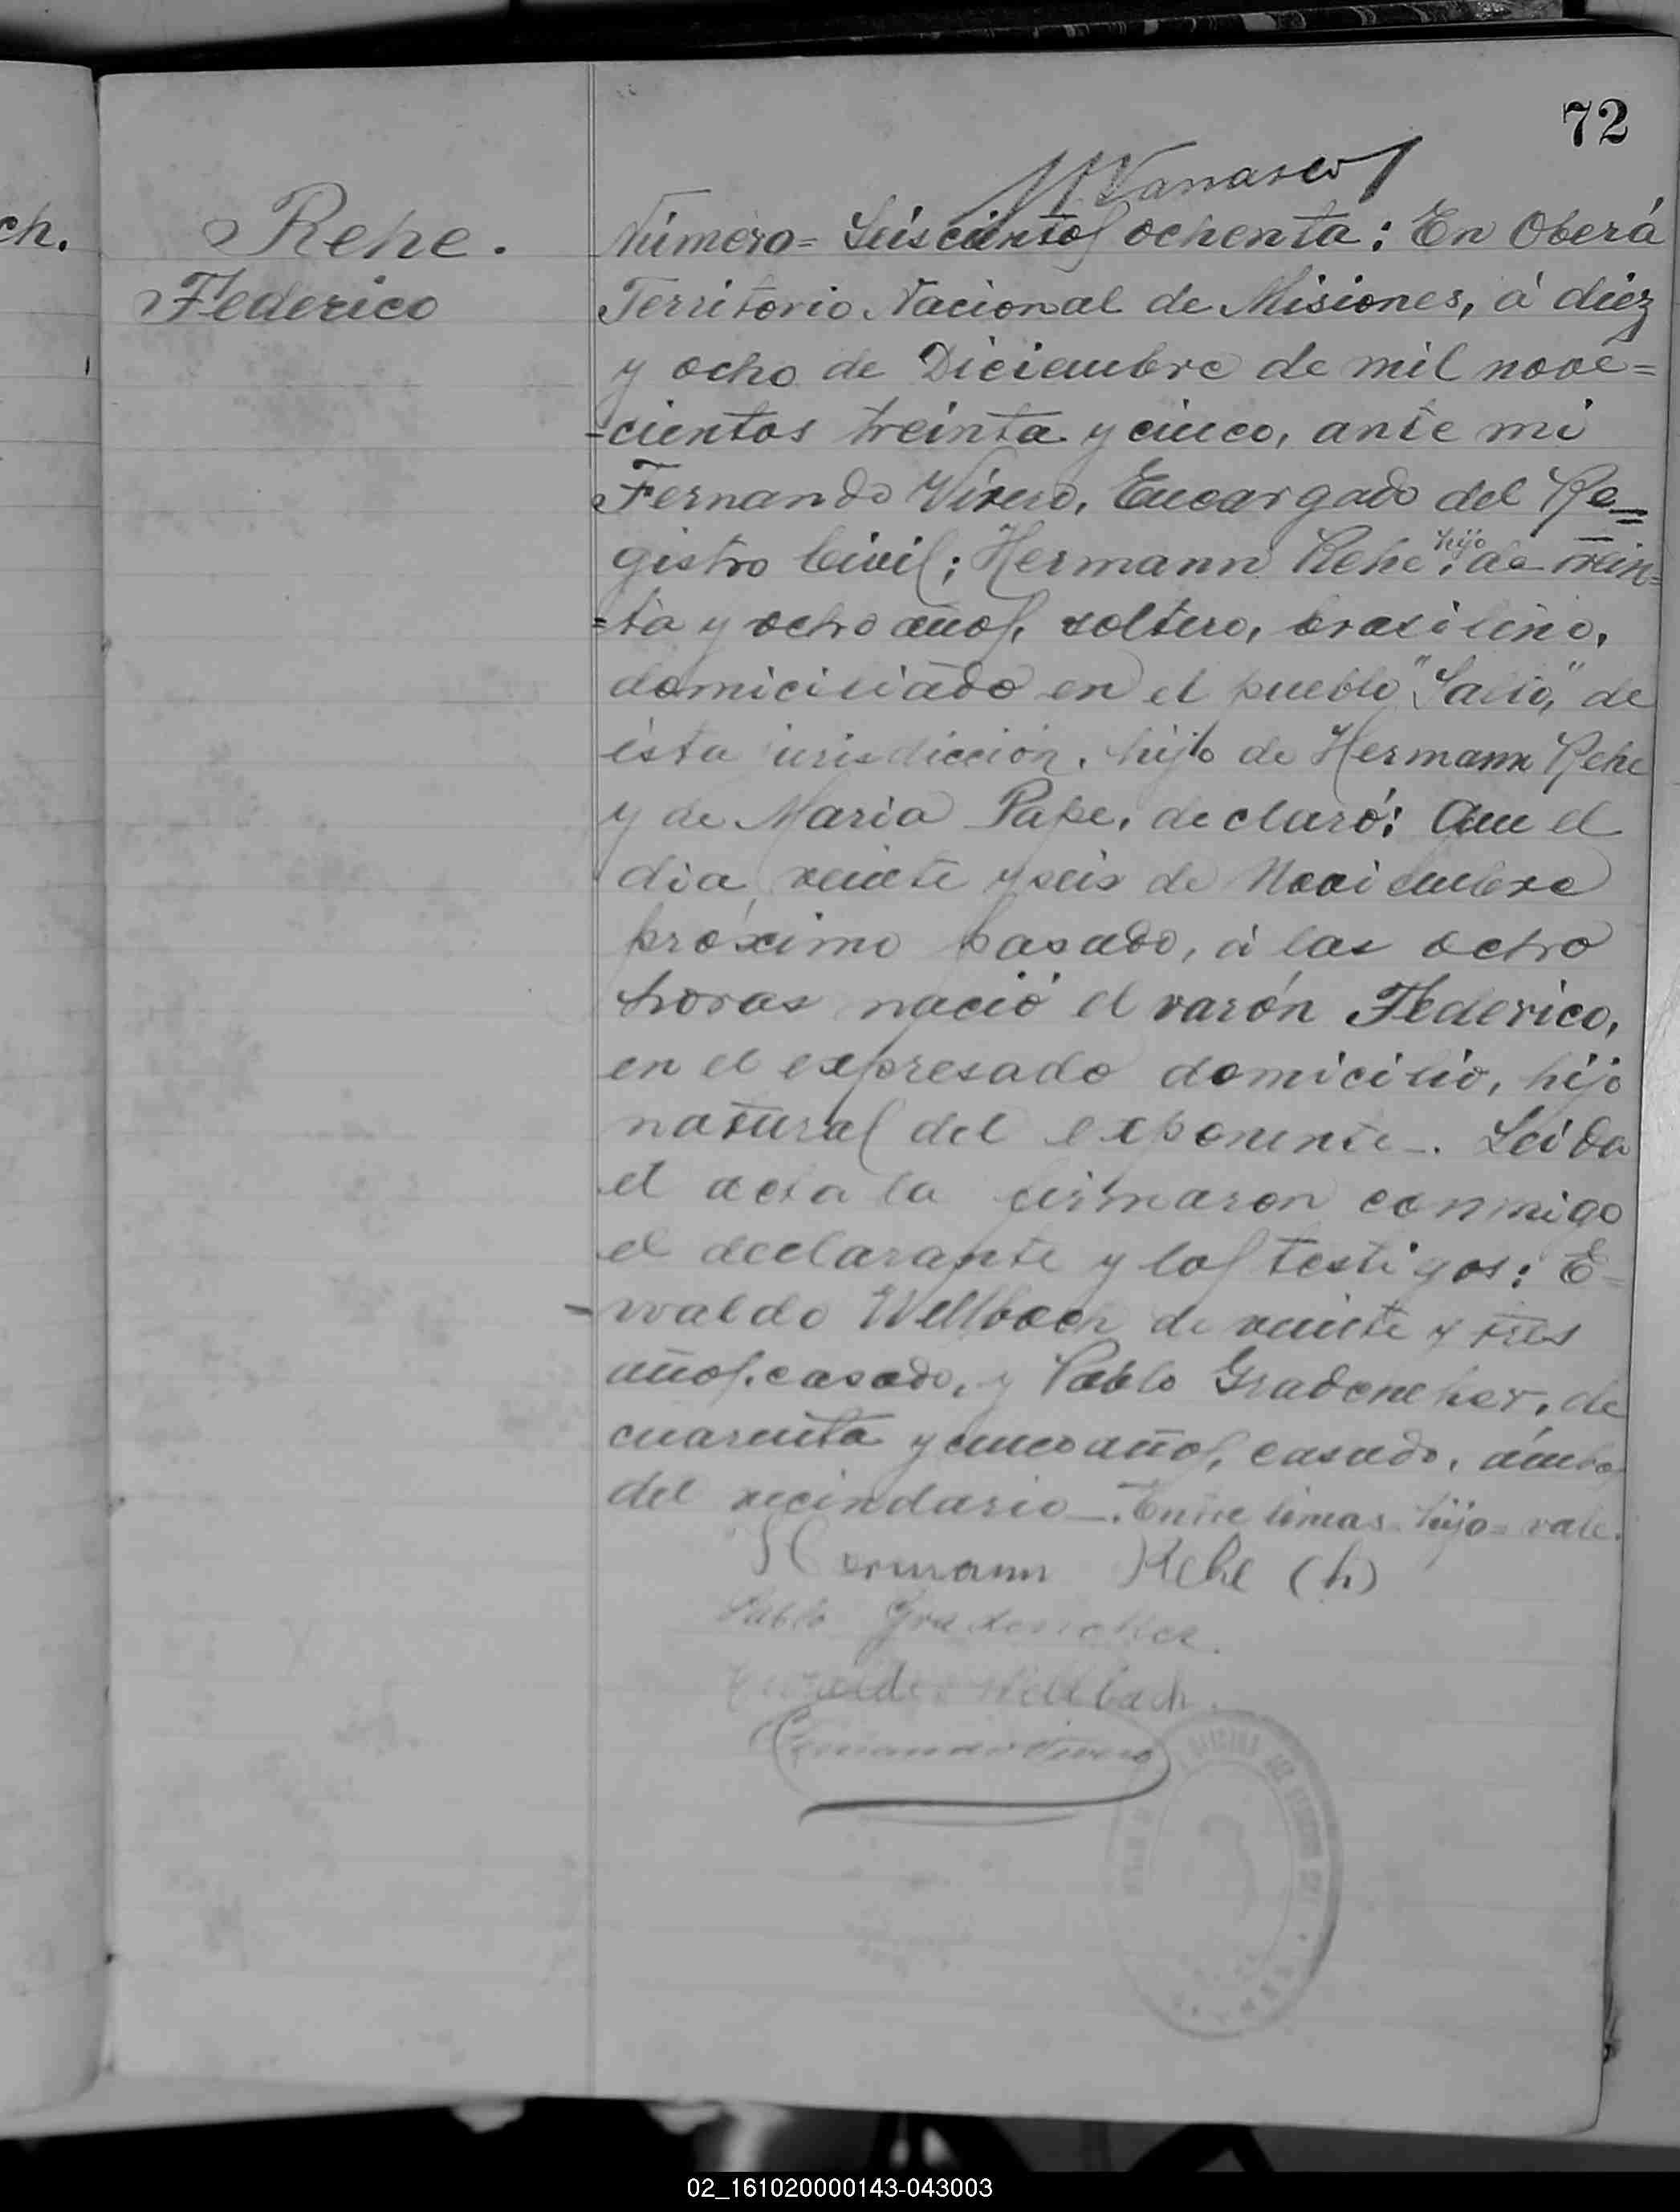 72
ch.
Rehe.
Federico
Número = Seiscientos ochenta: En Oberá
Territorio Nacional de Misiones, á diez
y ocho de Diciembre de mil nove=
=cientos treinta y cinco, ante mi
Fernando Vivero, Encargado del Re=
gistro Civil; Hermann Rehe, hijo, de trein=
=ta y ocho años, soltero, brasileño,
domiciliado en el pueblo "Salto," de
ésta jurisdicción, hijo de Hermann Rehe
y de Maria Pape, declaró: Que el
dia veinte y seis de Noviembre
próximo pasado, á las ocho
horas nació el varón Federico,
en el expresado domicilio, hijo
natural del exponente_. Leida
el acta la firmaron conmigo
el declarante y los testigos: E=
=waldo Wellbach de veinte y tres
años, casado, y Pablo Gradeneker, de
cuarenta y cinco años, casado, ámbos
del vecindario_. Entre lineas = hijo = vale.
Hermann Rehe (h)
Pablo
Wellbach.
Fernando Vivero
02_161020000143-043003